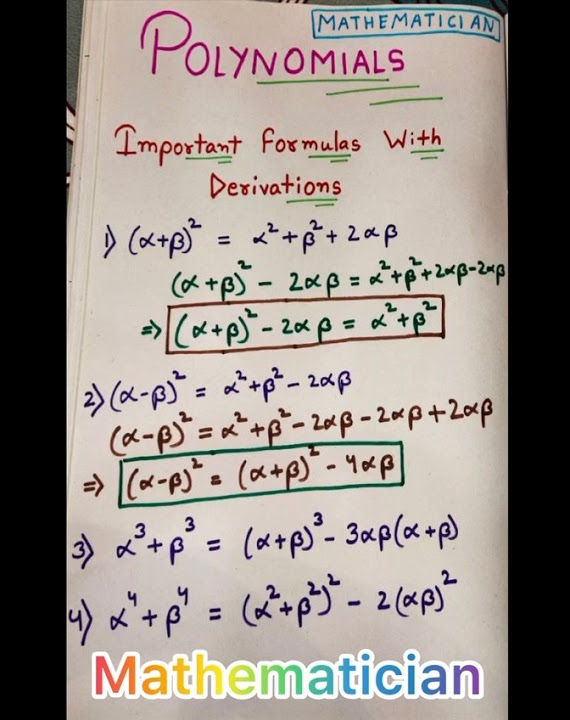 MATHEMATICIAN
POLYNOMIALS
Important Formulas With
Derivations
1) (α+β)² = α²+β²+2αβ
(α+β)² - 2αβ = α²+β²+2αβ-2αβ
=> (α+β)² - 2αβ = α²+β²
2) (α-β)² = α²+β²-2αβ
(α-β)² = α²+β²-2αβ-2αβ+2αβ
=> (α-β)² = (α+β)² - 4αβ
3) α³+β³ = (α+β)³ - 3αβ(α+β)
4) α⁴+β⁴ = (α²+β²)² - 2(αβ)²
Mathematician